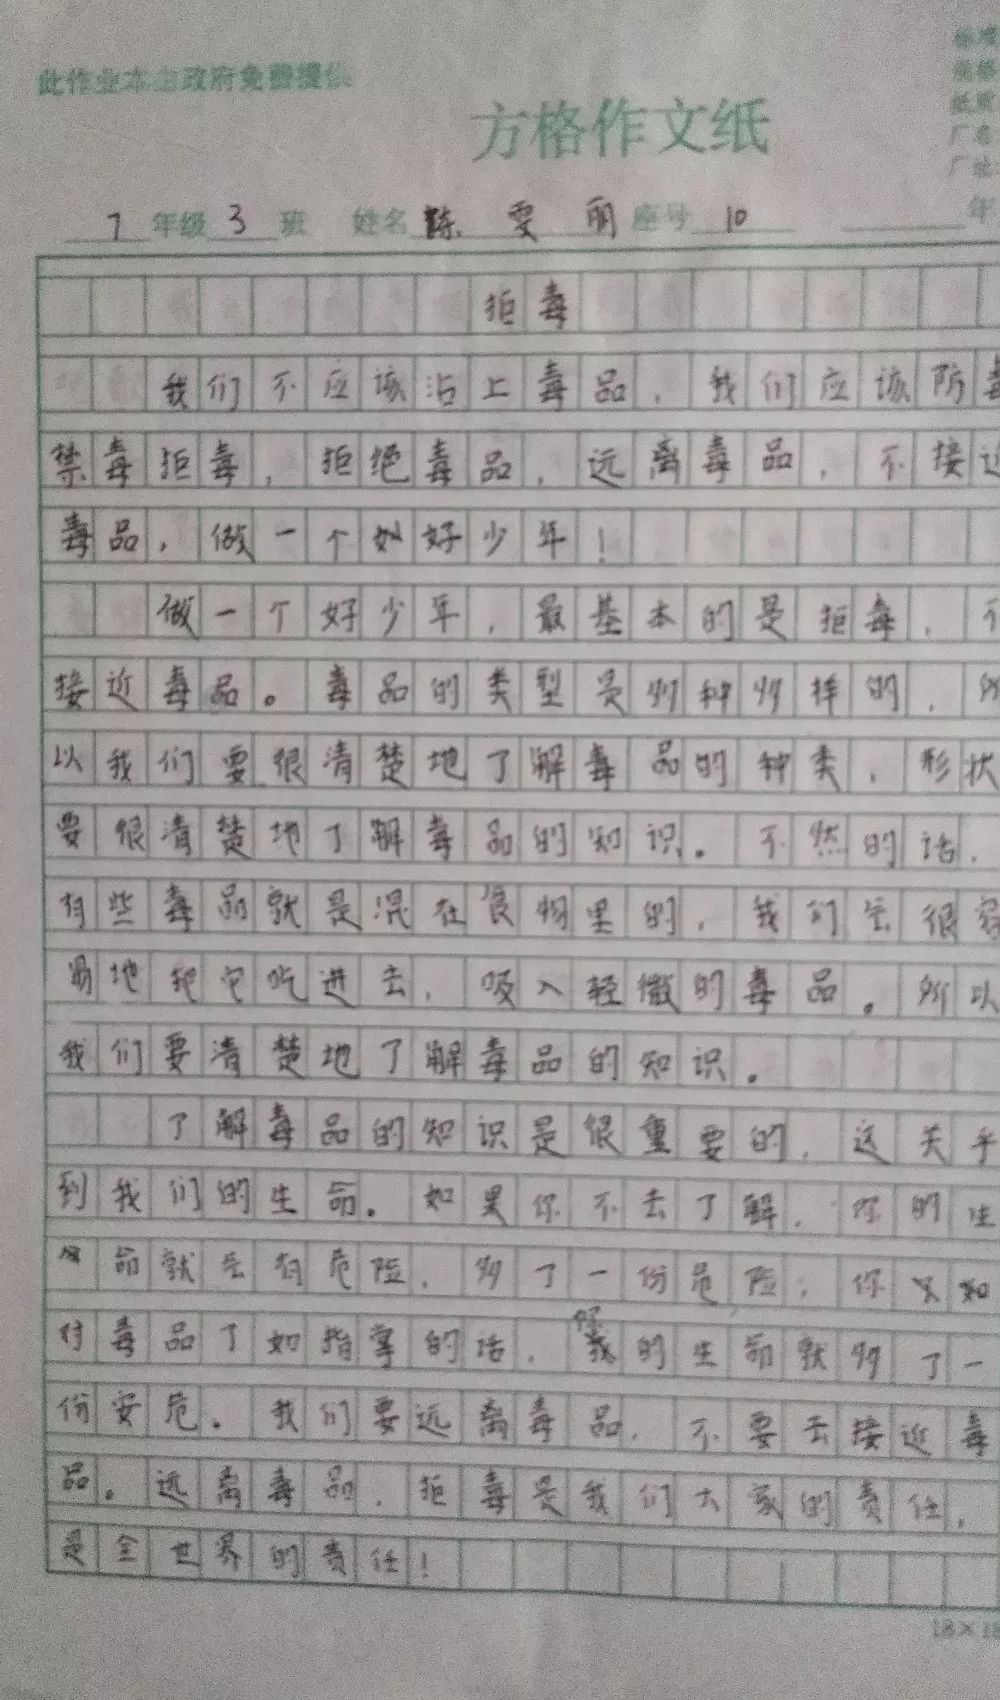 此作业本由政府免费提供
方格作文纸
7年级3班 姓名陈雯丽座号10 年
拒毒
我们不应该沾上毒品,我们应该防毒
禁毒拒毒,拒绝毒品,远离毒品,不接近
毒品,做一个好少年!
做一个好少年,最基本的是拒毒,不
接近毒品。毒品的类型是多种多样的,所
以我们要很清楚地了解毒品的种类,形状
要很清楚地了解毒品的知识。不然的话,
有些毒品就是混在食物里的,我们会很容
易地把它吃进去,吸入轻微的毒品。所以
我们要清楚地了解毒品的知识。
了解毒品的知识是很重要的,这关乎
到我们的生命。如果你不去了解,你的生
命就会有危险,多了一份危险,你又如
对毒品了如指掌的话,你的生命就多了一
份安危。我们要远离毒品,不要去接近毒
品。远离毒品,拒毒是我们大家的责任,
是全世界的责任!